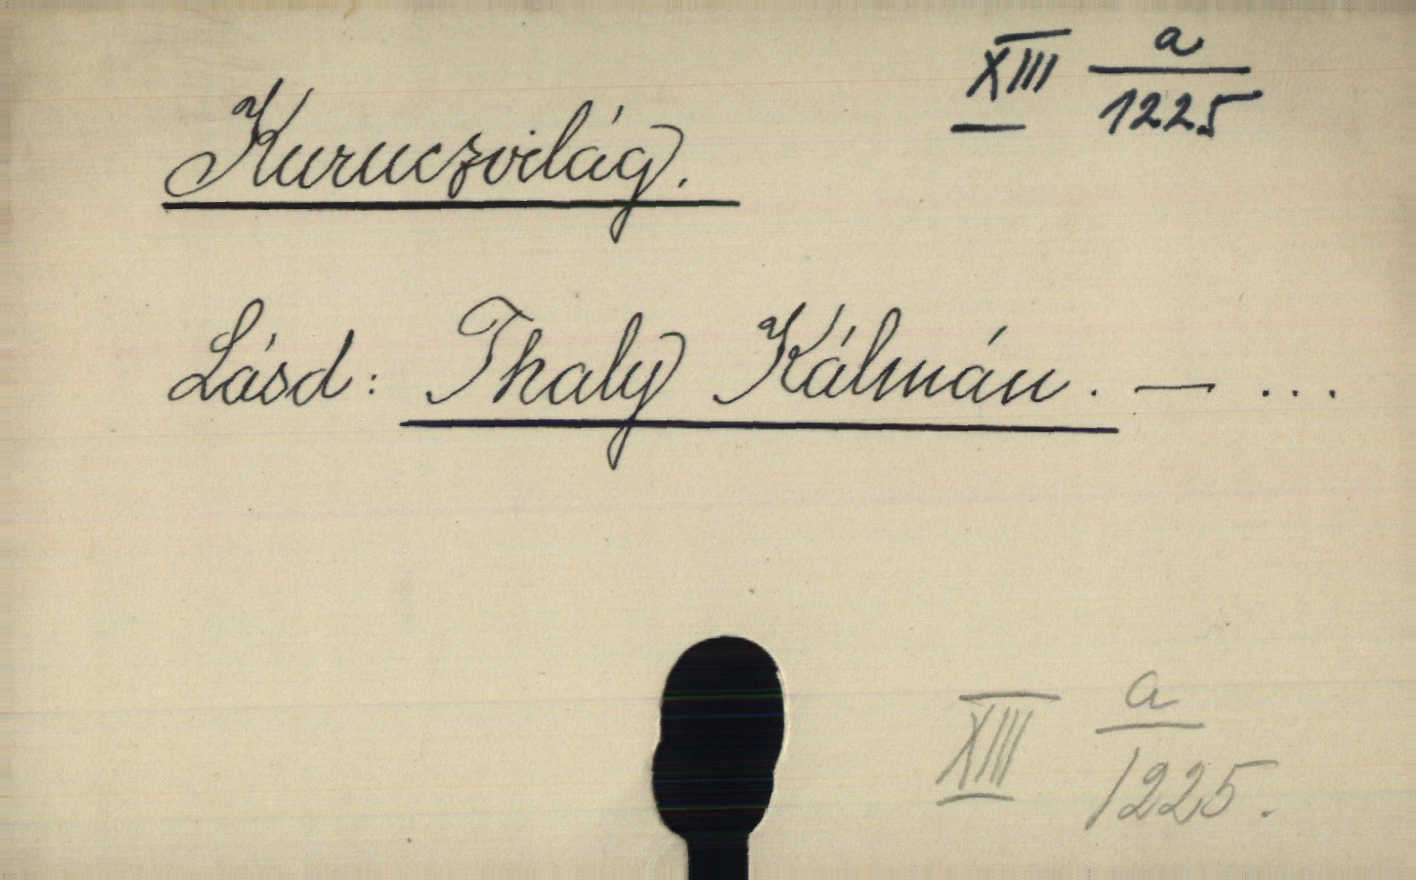 XIII a/1225
Kuruczvilág.
Lásd: Thaly Kálmán. — ...
XIII a/1225.